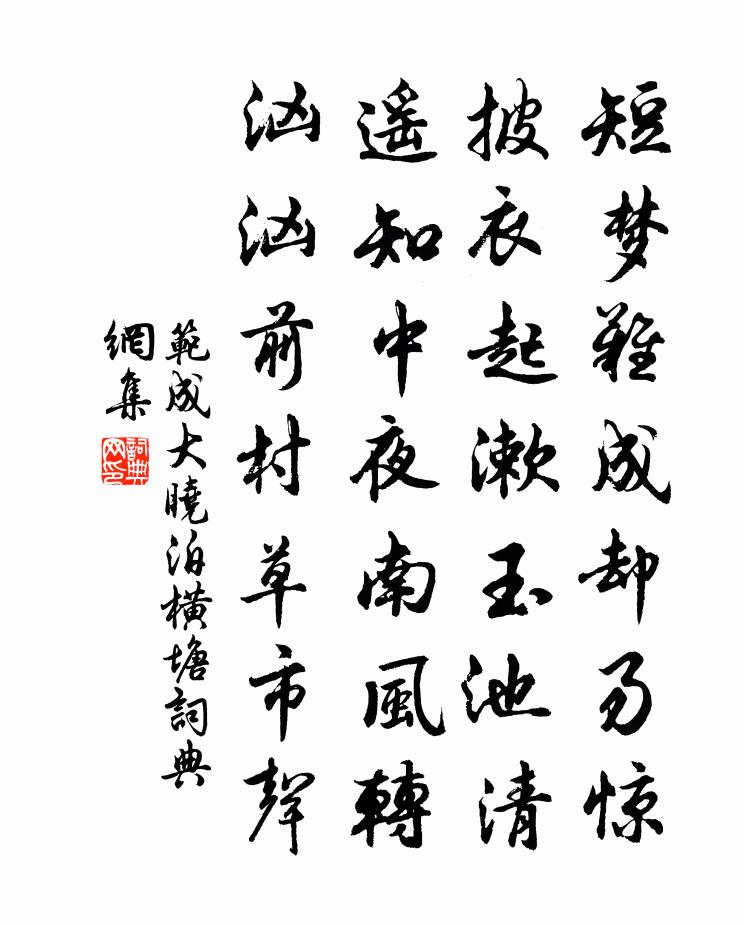 短梦難成却易惊
披衣起漱玉池清
遥知中夜南風轉
汹汹前村草市聲
範成大曉泊橫塘詞典
網集
詞典
网印